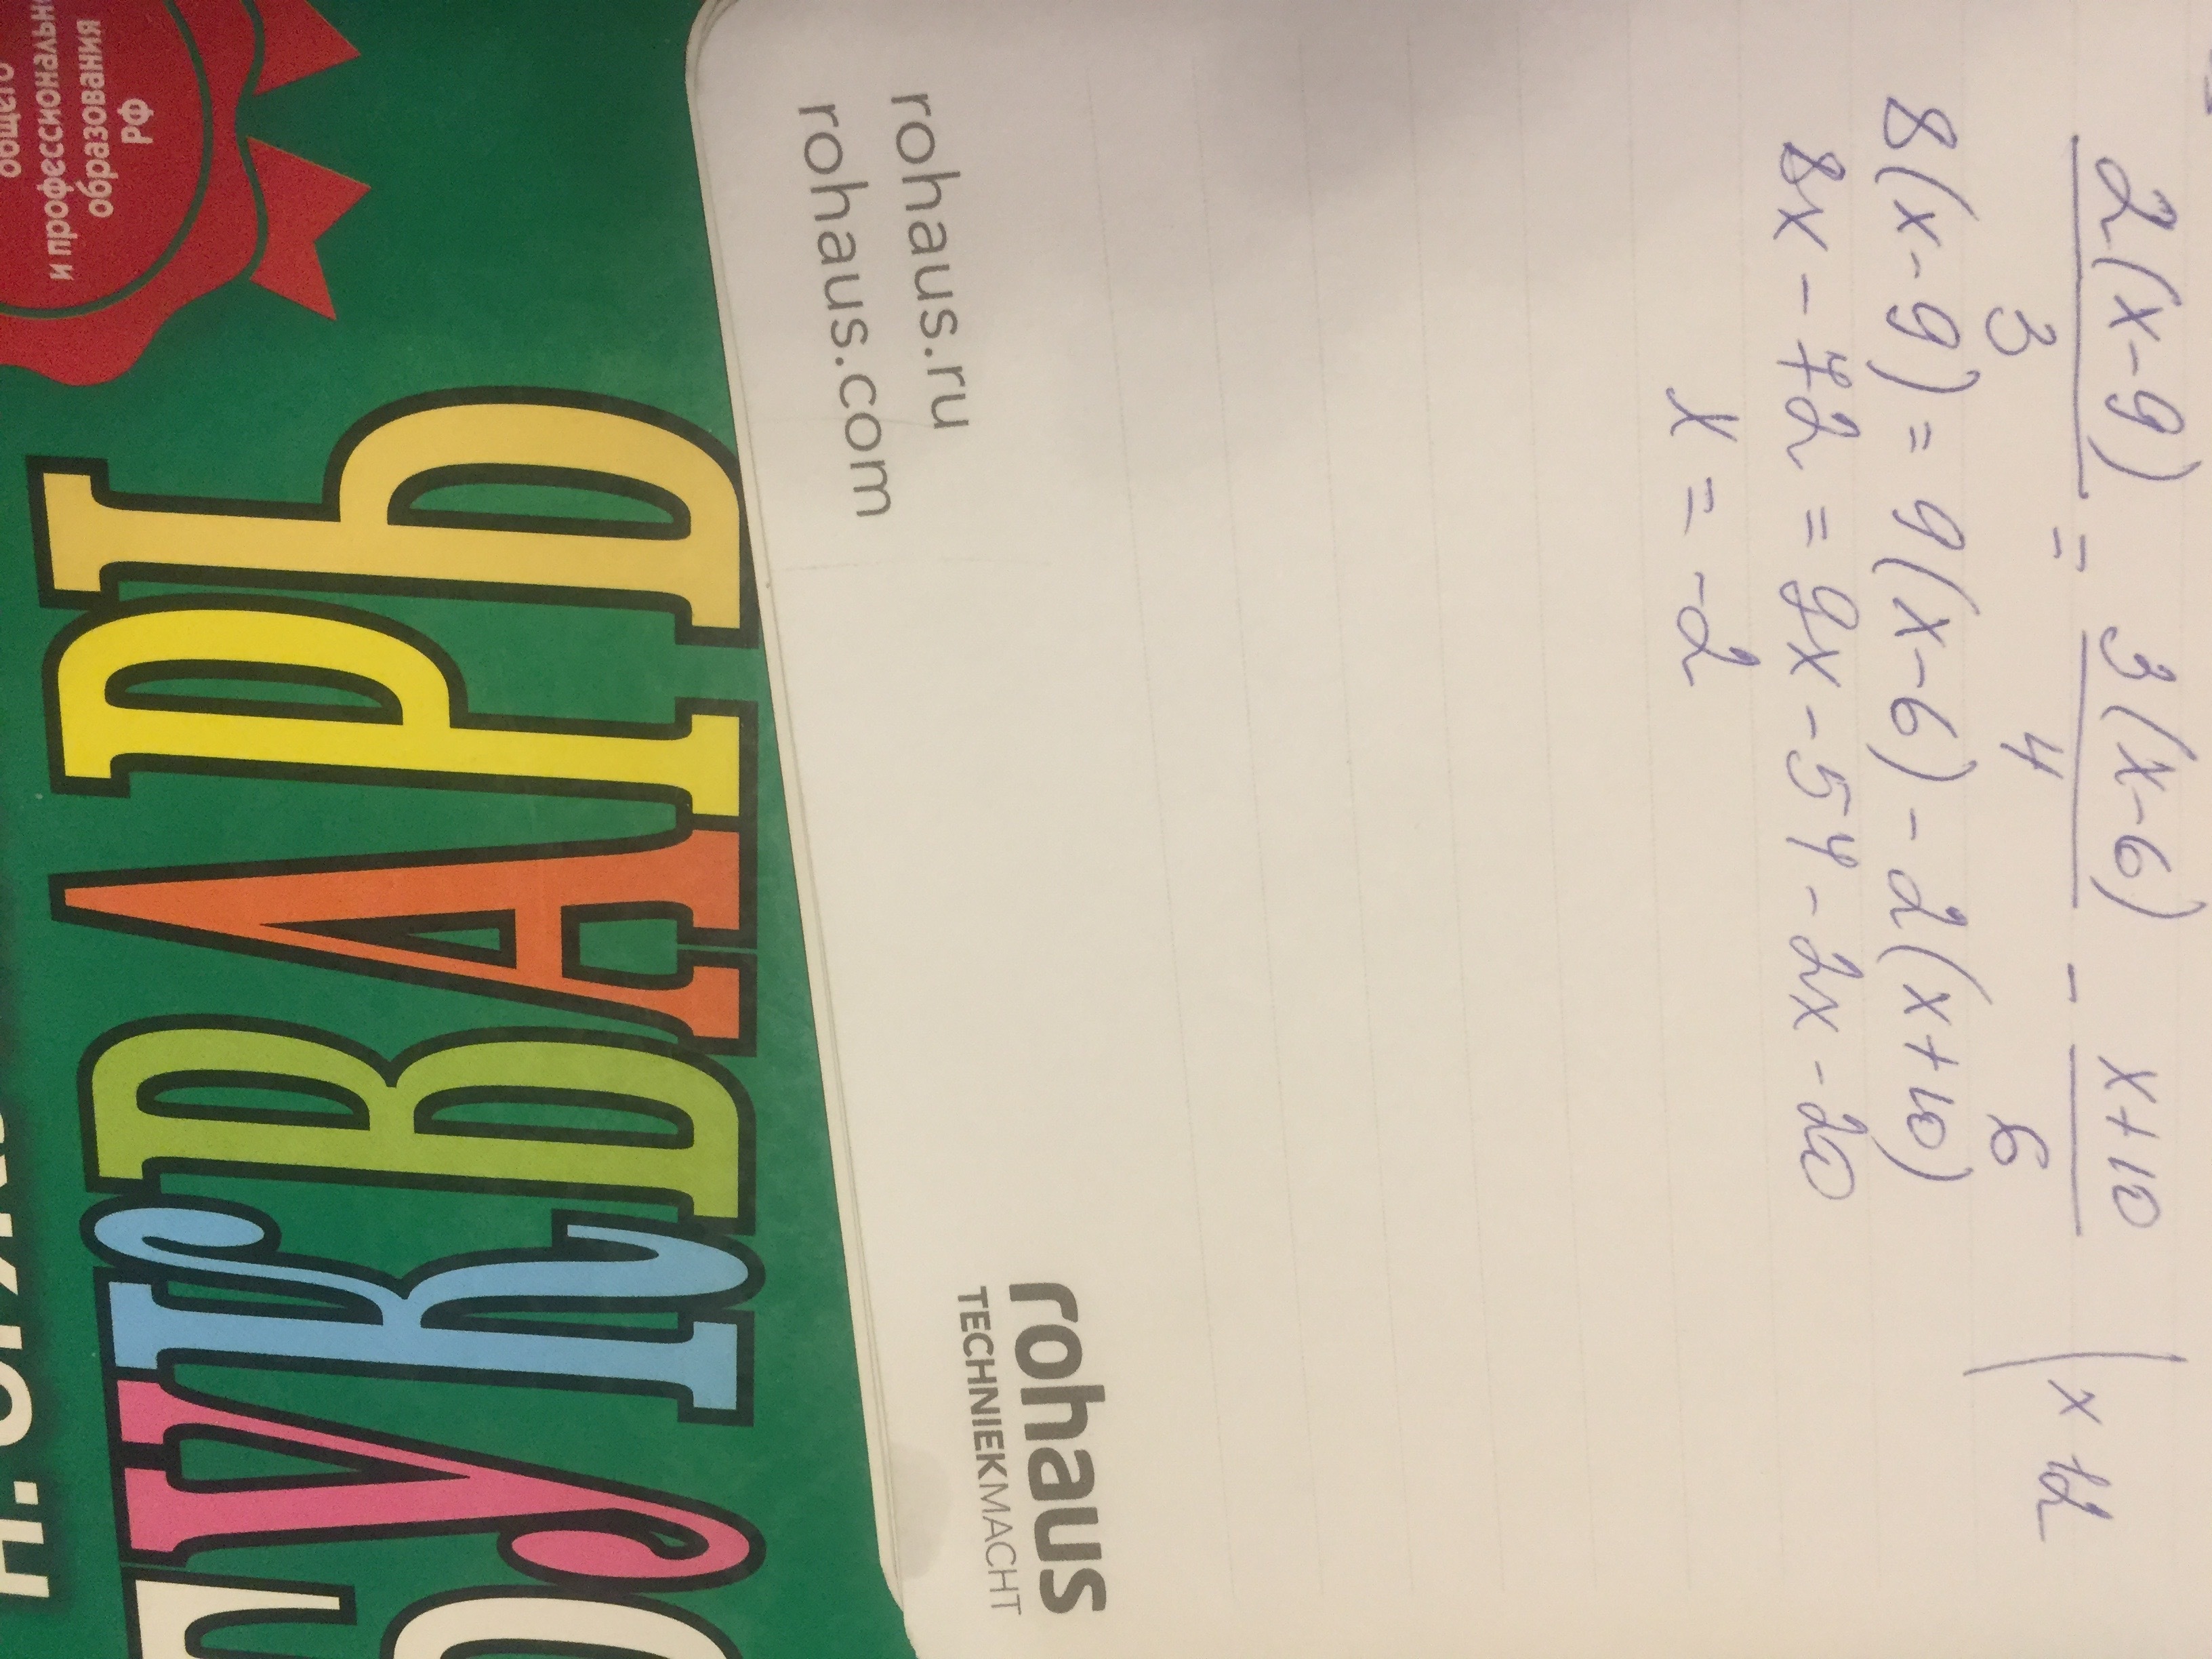 2(x-9)/3 = 3(x-6)/4 - x+10/6 | x 12
8(x-9) = 9(x-6) - 2(x+10)
8x - 72 = 9x - 54 - 2x - 20
x = -2
rohaus.ru
rohaus.com
rohaus
TECHNIEKMACHT
БУКВАРЬ
общего
и профессиональн
образования
РФ